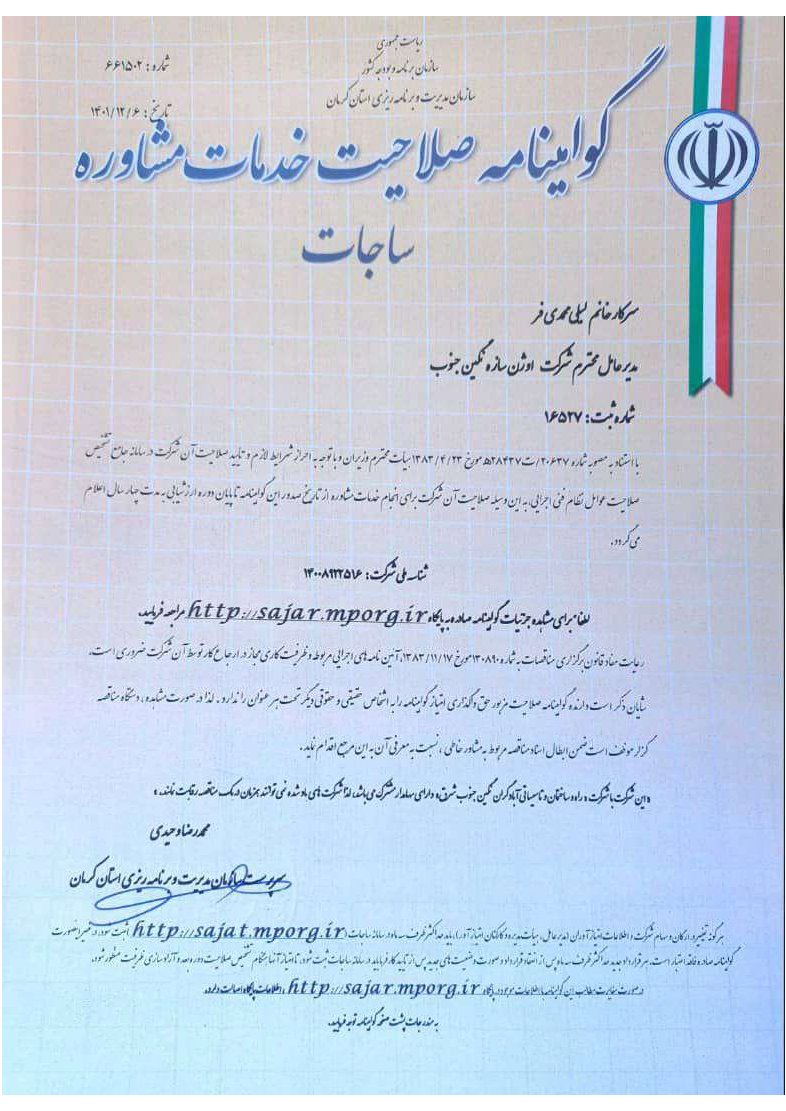 ریاست جمهوری
سازمان برنامه و بودجه کشور
سازمان مدیریت و برنامه ریزی استان کرمان
شماره : ۶۶۱۵۰۲
تاریخ : ۱۴۰۱/۱۲/۶
گواهینامه صلاحیت خدمات مشاوره
ساجات
سرکار خانم لیلی محمدی فر
مدیر عامل محترم شرکت اوژن سازه نگین جنوب
شماره ثبت: ۱۶۵۲۷
با استناد به مصوبه شماره ۲۰۶۳۷/ت۲۸۴۳۷ه مورخ ۱۳۸۳/۴/۲۳ هیأت محترم وزیران و با توجه به احراز شرایط لازم و تأیید صلاحیت آن شرکت در سامانه جامع تشخیص
صلاحیت عوامل نظام فنی اجرایی، به این وسیله صلاحیت آن شرکت برای انجام خدمات مشاوره از تاریخ صدور این گواهینامه تا پایان دوره ارزشیابی به مدت چهار سال اعلام
می گردد.
شناسه ملی شرکت: ۱۴۰۰۸۹۲۲۵۱۶
لطفا برای مشاهده جزئیات گواهینامه صادره به پایگاه http://sajar.mporg.ir مراجعه فرمایید.
رعایت مفاد قانون برگزاری مناقصات به شماره ۱۳۰۸۹۰ مورخ ۱۳۸۳/۱۱/۱۷، آئین نامه های اجرایی مربوطه و ظرفیت کاری مجاز در ارجاع کار توسط آن شرکت ضروری است.
شایان ذکر است دارنده گواهینامه صلاحیت مزبور حق واگذاری امتیاز گواهینامه را به اشخاص حقیقی و حقوقی دیگر تحت هر عنوان را ندارد . لذا در صورت مشاهده ، دستگاه مناقصه
گزار موظف است ضمن ابطال اسناد مناقصه مربوط به مشاور خاطی ، نسبت به معرفی آن به این مرجع اقدام نماید .
«این شرکت با شرکت « راه و ساختمان و تاسیساتی آبادگران نگین جنوب شرق» دارای سهامدار مشترک می باشد، لذا شرکت های یاد شده نمی توانند همزمان در یک مناقصه رقابت نمایند. »
محمدرضا وحیدی
سرپرست سازمان مدیریت و برنامه ریزی استان کرمان
هر گونه تغییر در ارکان و سهام شرکت و اطلاعات امتیازآوران (مدیرعامل، هیات مدیره و کارکنان امتیازآور)، باید حداکثر ظرف سه ماه در سامانه ساجات (http://sajat.mporg.ir) ثبت شود، در غیر اینصورت
گواهینامه صادره فاقد اعتبار است. هر قرارداد جدید حداکثر ظرف سه ماه پس از انعقاد قرارداد و صورت وضعیت های جدید پس از تایید کارفرما باید در سامانه ساجات ثبت شود، تا امتیاز آنها هنگام تشخیص صلاحیت دوره بعد و آزادسازی ظرفیت منظور شود.
در صورت مغایرت مطالب این گواهینامه با اطلاعات موجود در پایگاه http://sajar.mporg.ir ، اطلاعات پایگاه اصالت دارد.
به مندرجات پشت صفحه گواهینامه توجه فرمایید.